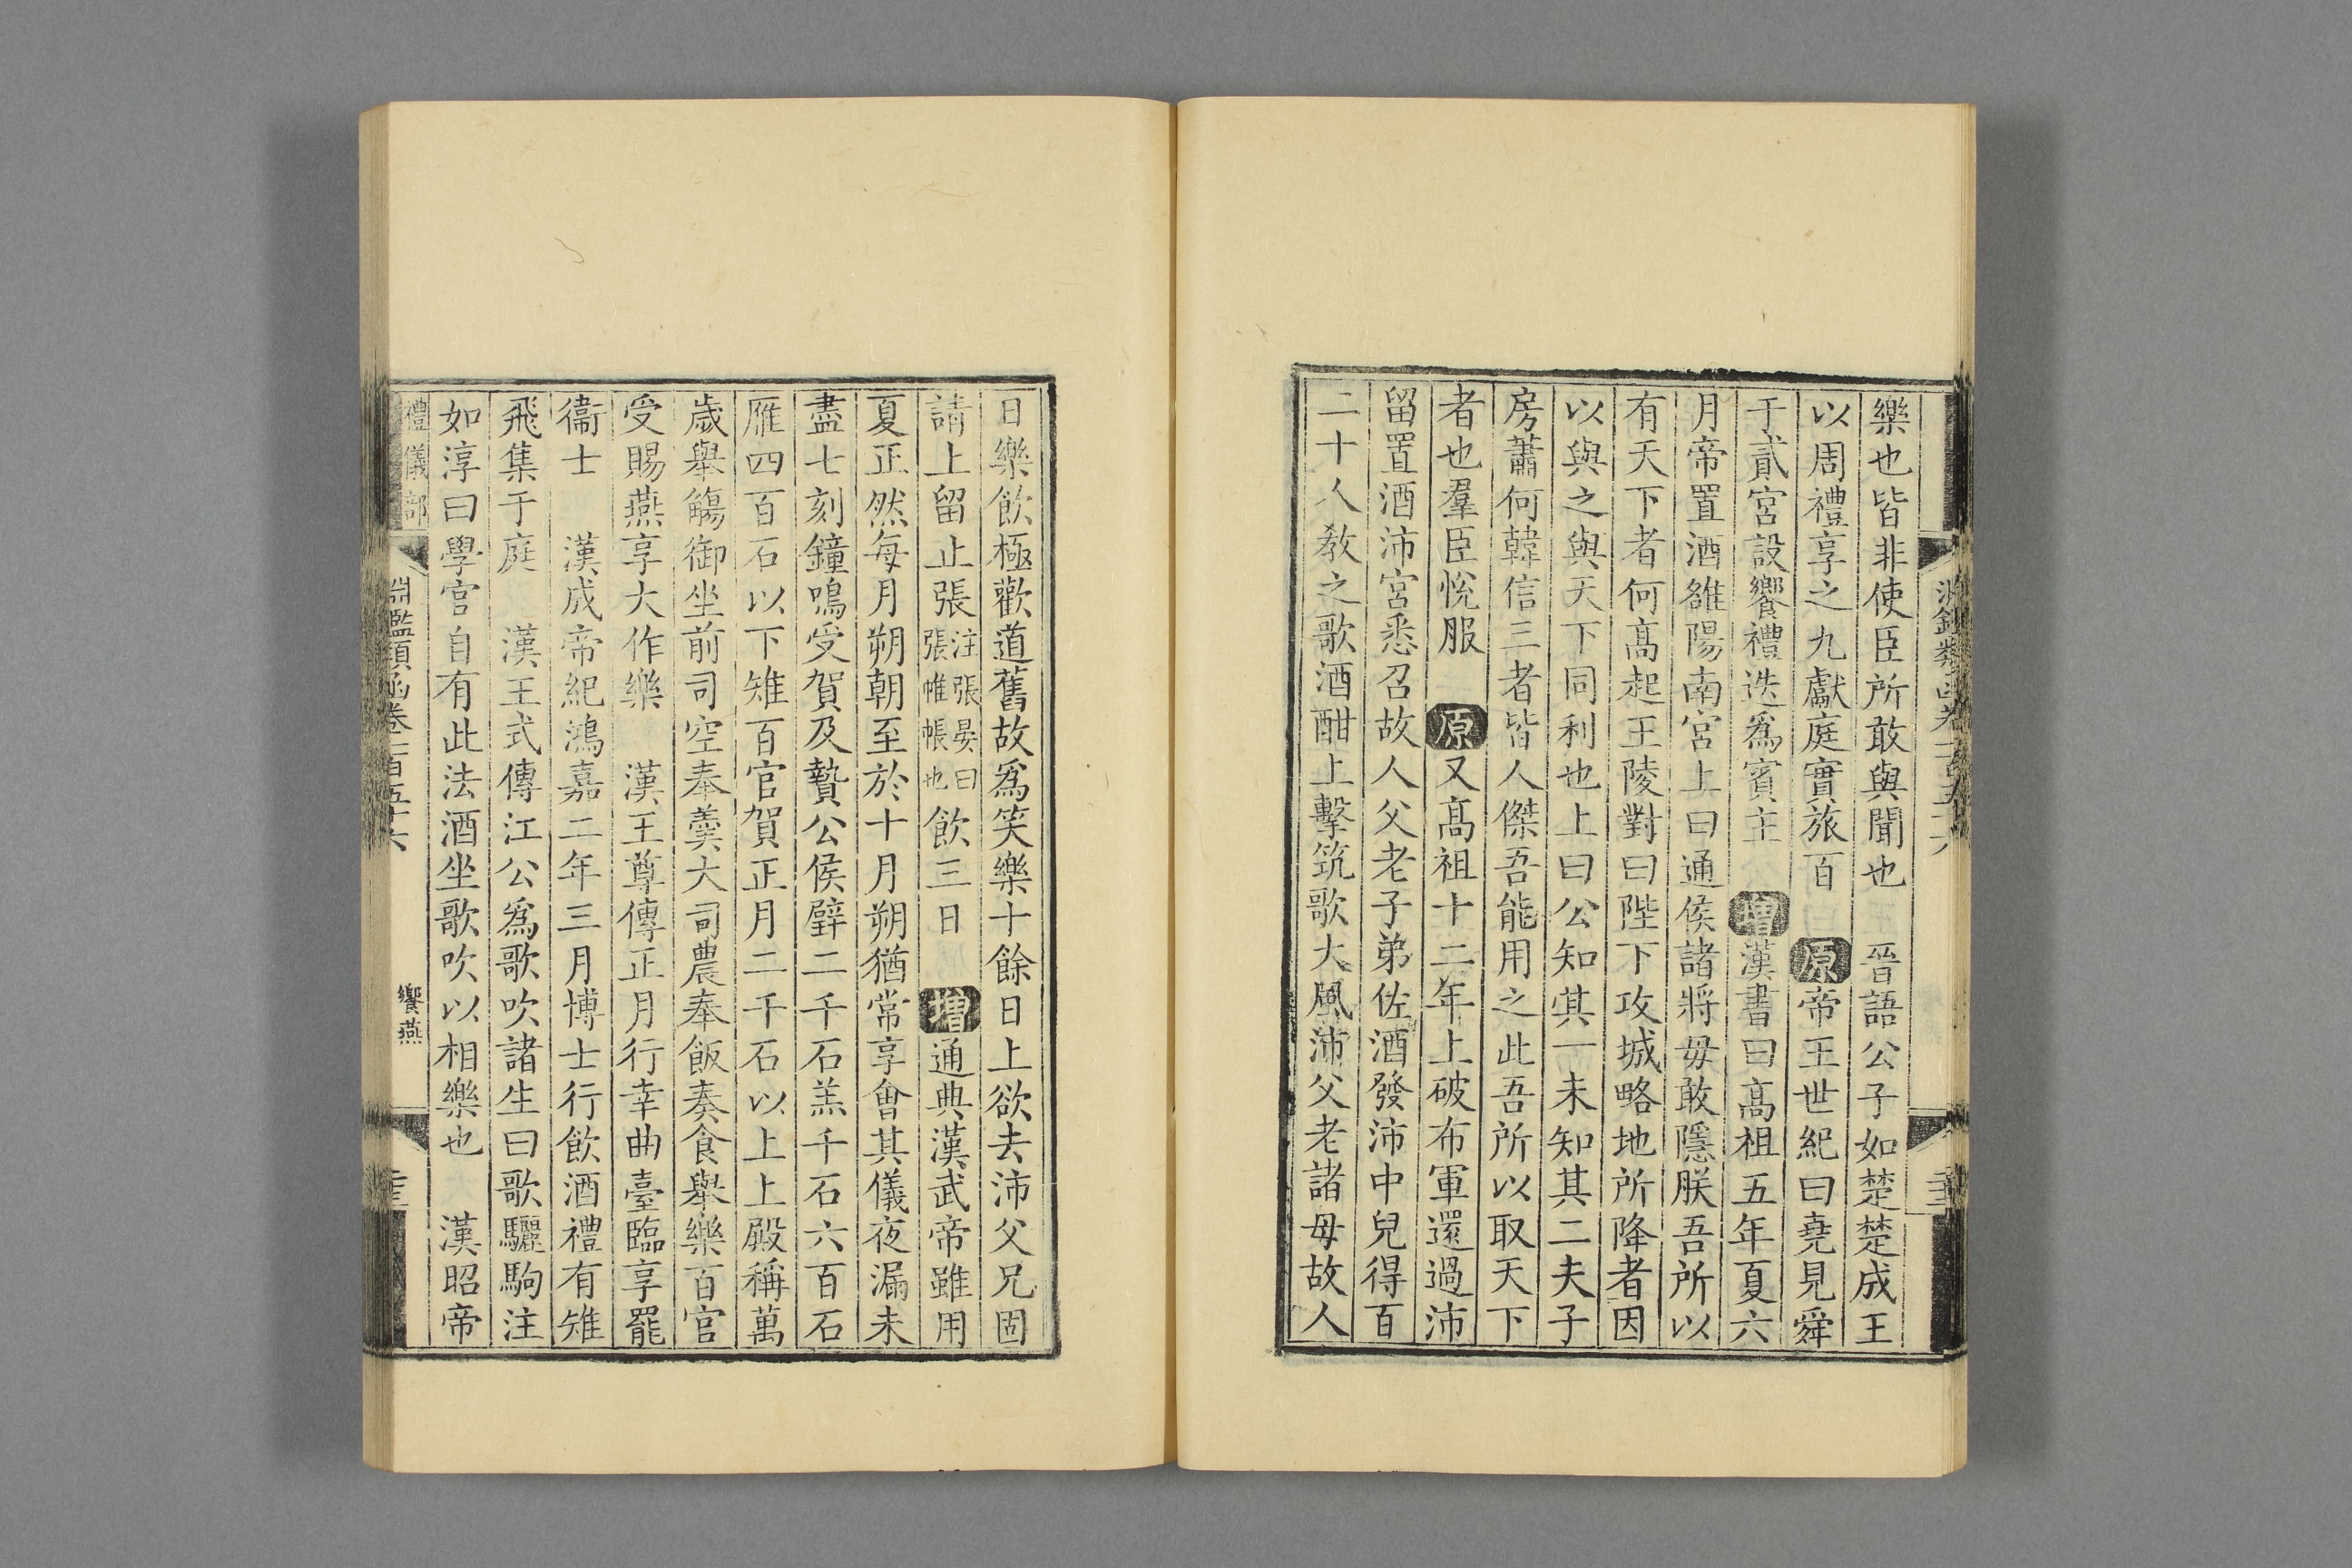 樂也皆非使臣所敢與聞也　晉語公子如楚楚成王
以周禮享之九獻庭實旅百　原帝王世紀曰堯見舜
于貳宮設饗禮迭爲賓主　增漢書曰高祖五年夏六
月帝置酒雒陽南宮上曰通侯諸將毋敢隱朕吾所以
有天下者何高起王陵對曰陛下攻城略地所降者因
以與之與天下同利也上曰公知其一未知其二夫子
房蕭何韓信三者皆人傑吾能用之此吾所以取天下
者也羣臣悅服　原又高祖十二年上破布軍還過沛
留置酒沛宮悉召故人父老子弟佐酒發沛中兒得百
二十人敎之歌酒酣上擊筑歌大風沛父老諸母故人
日樂飮極歡道舊故爲笑樂十餘日上欲去沛父兄固
請上留止張注張晏曰張帷帳也飮三日　增通典漢武帝雖用
夏正然每月朔朝至於十月朔猶常享會其儀夜漏未
盡七刻鐘鳴受賀及贄公侯璧二千石羔千石六百石
雁四百石以下雉百官賀正月二千石以上上殿稱萬
歲舉觴御坐前司空奉羹大司農奉飯奏食舉樂百官
受賜燕享大作樂　漢王尊傳正月行幸曲臺臨享罷
衞士　漢成帝紀鴻嘉二年三月博士行飮酒禮有雉
飛集于庭　漢王式傳江公爲歌吹諸生曰歌驪駒注
如淳曰學官自有此法酒坐歌吹以相樂也　漢昭帝
禮儀部
淵鑑類函卷一百五十六
饗燕